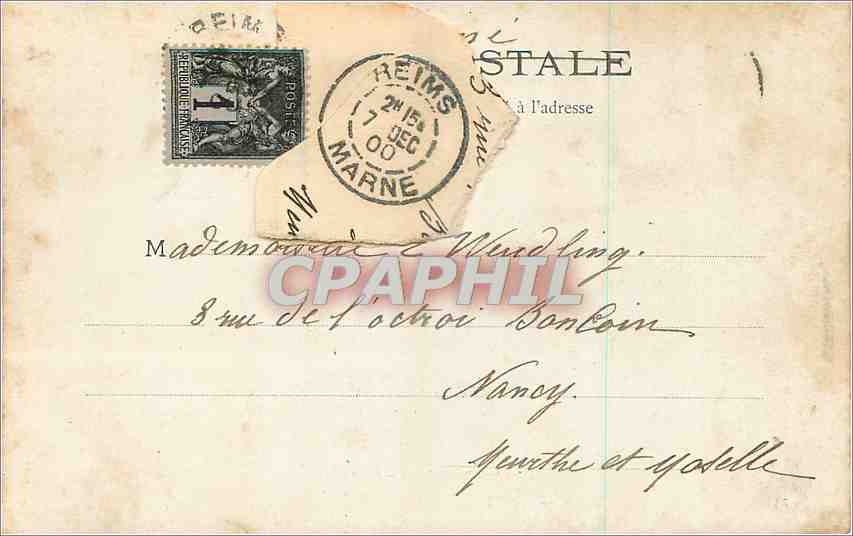 REIMS
né
STALE
à l'adresse
REPUBLIQUE FRANÇAISE
POSTES
1
REIMS
2H 15
7 DEC
00
MARNE
3 rue
Mademoiselle Wendling.
8 rue de l'octroi BonCoin
Nancy.
Meurthe et Moselle
CPAPHIL